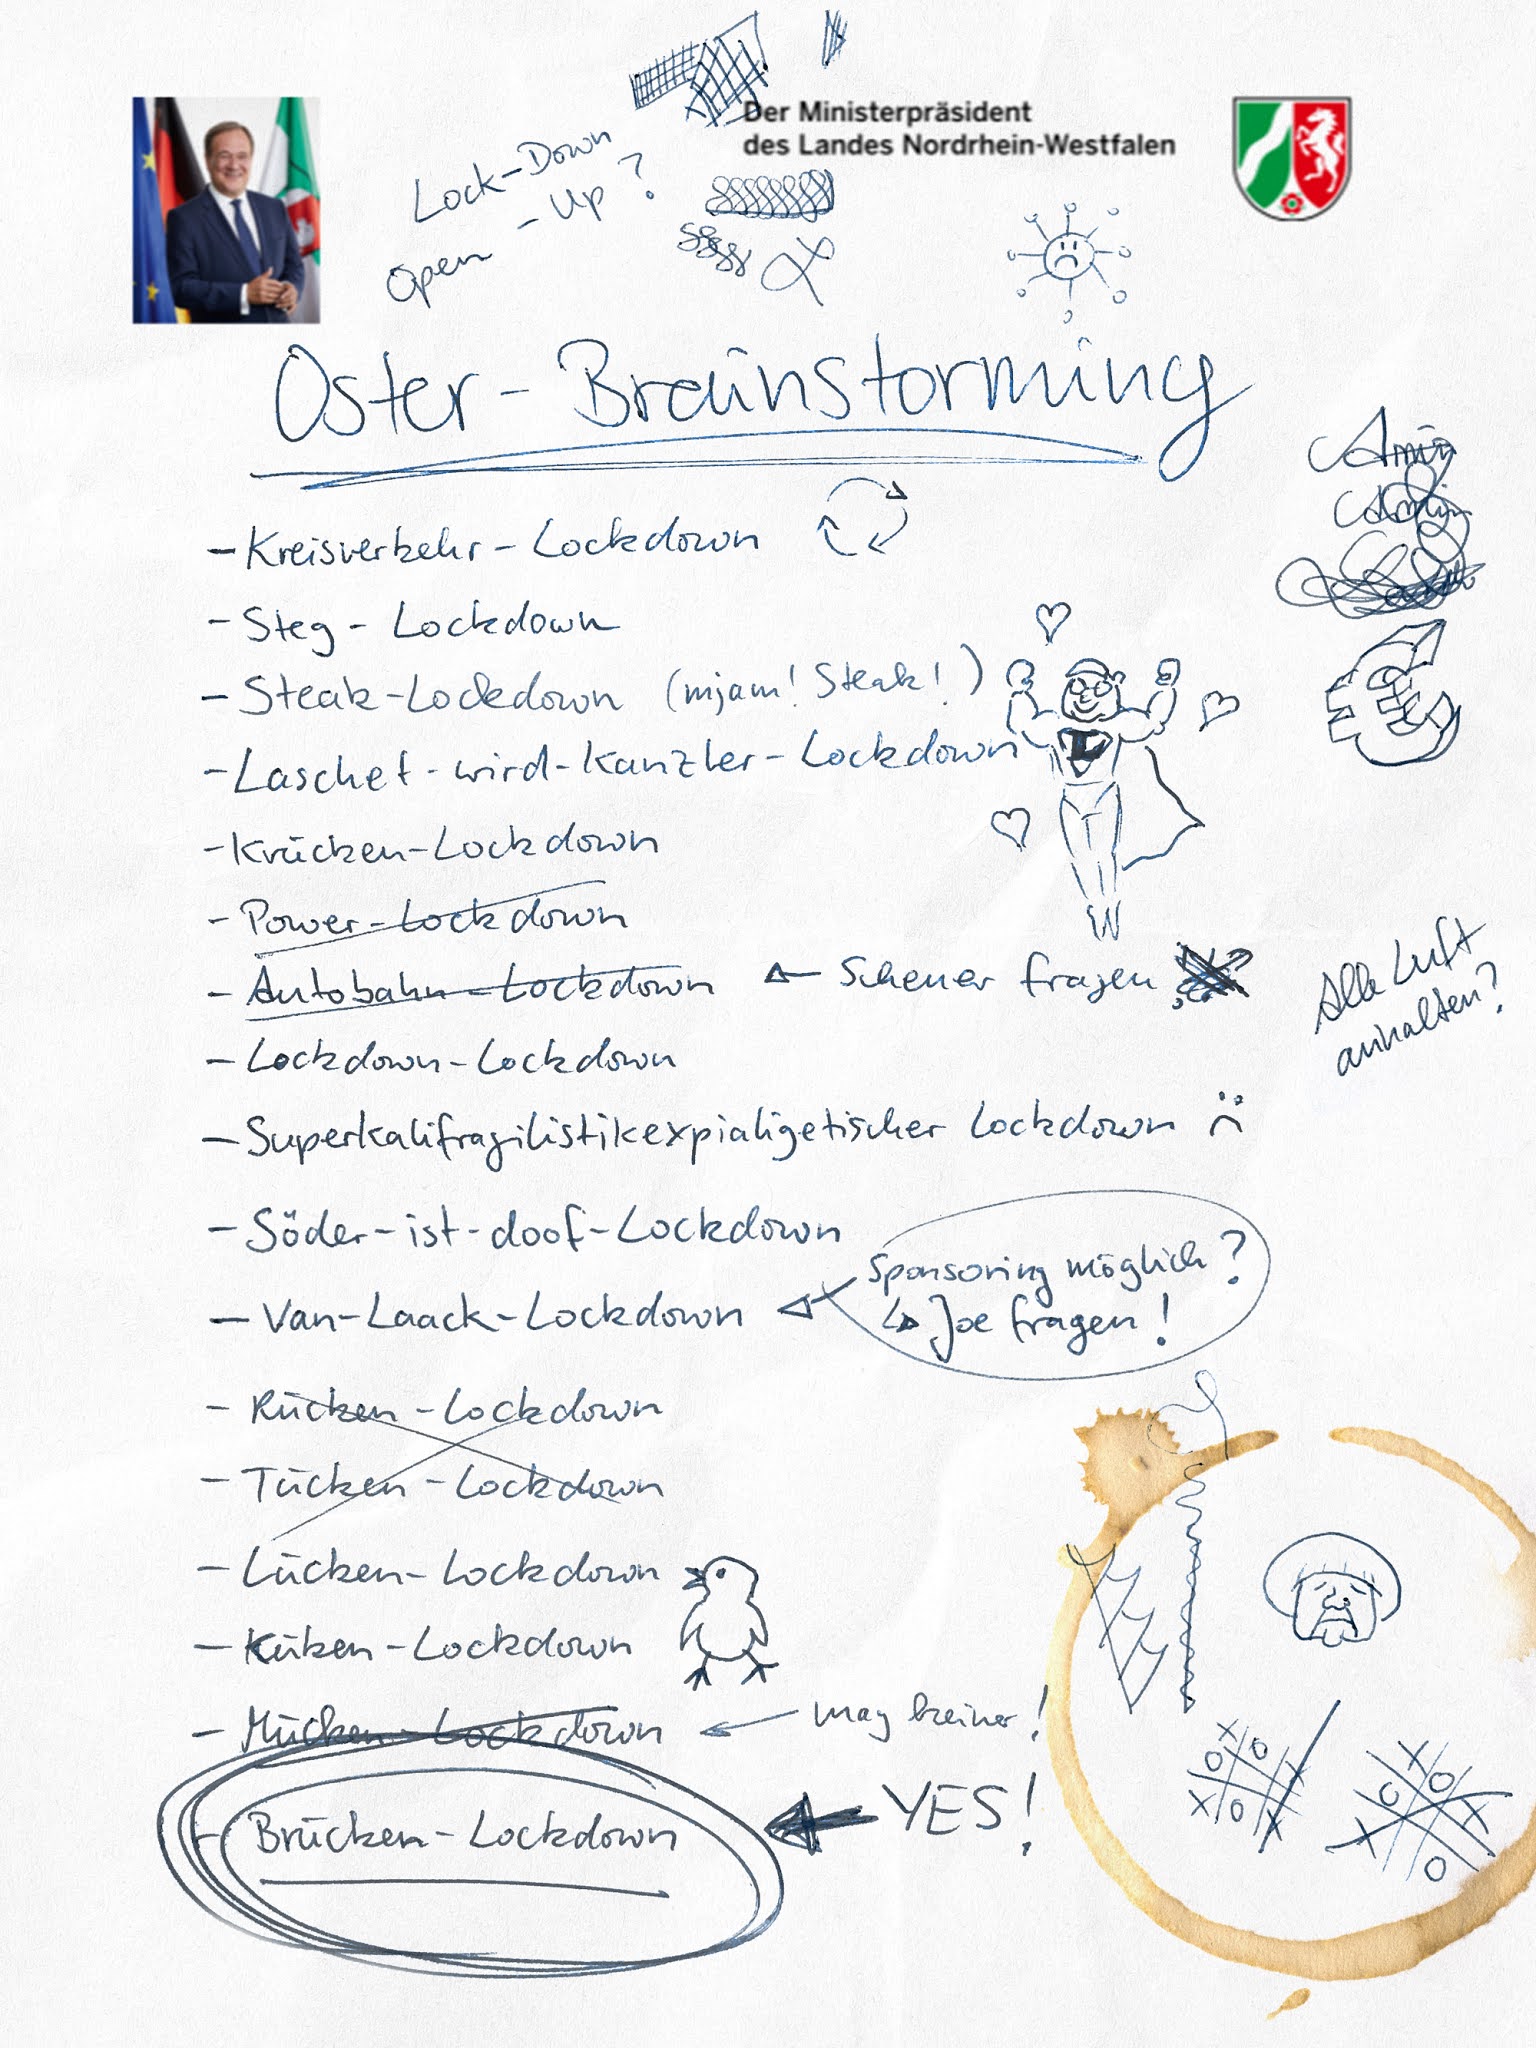 Der Ministerpräsident
des Landes Nordrhein-Westfalen
Lock-Down
Open-Up?
Oster-Brainstorming
Armin
- Kreisverkehr-Lockdown
- Steg-Lockdown
- Steak-Lockdown (mjam! Steak!)
- Laschet-wird-Kanzler-Lockdown
L
- Krücken-Lockdown
- Power-Lockdown
- Autobahn-Lockdown ← Scheuer fragen
Alle Luft
anhalten?
- Lockdown-Lockdown
- Superkalifragilistikexpialigetischer Lockdown :(
- Söder-ist-doof-Lockdown
Sponsoring möglich?
↳ Joe fragen!
- Van-Laack-Lockdown ←
- Rücken-Lockdown
- Tücken-Lockdown
- Lücken-Lockdown
- Küken-Lockdown
- Mücken-Lockdown ← mag keiner!
- Brücken-Lockdown ← YES!
X O
O
X O X
X
O O X
X
O